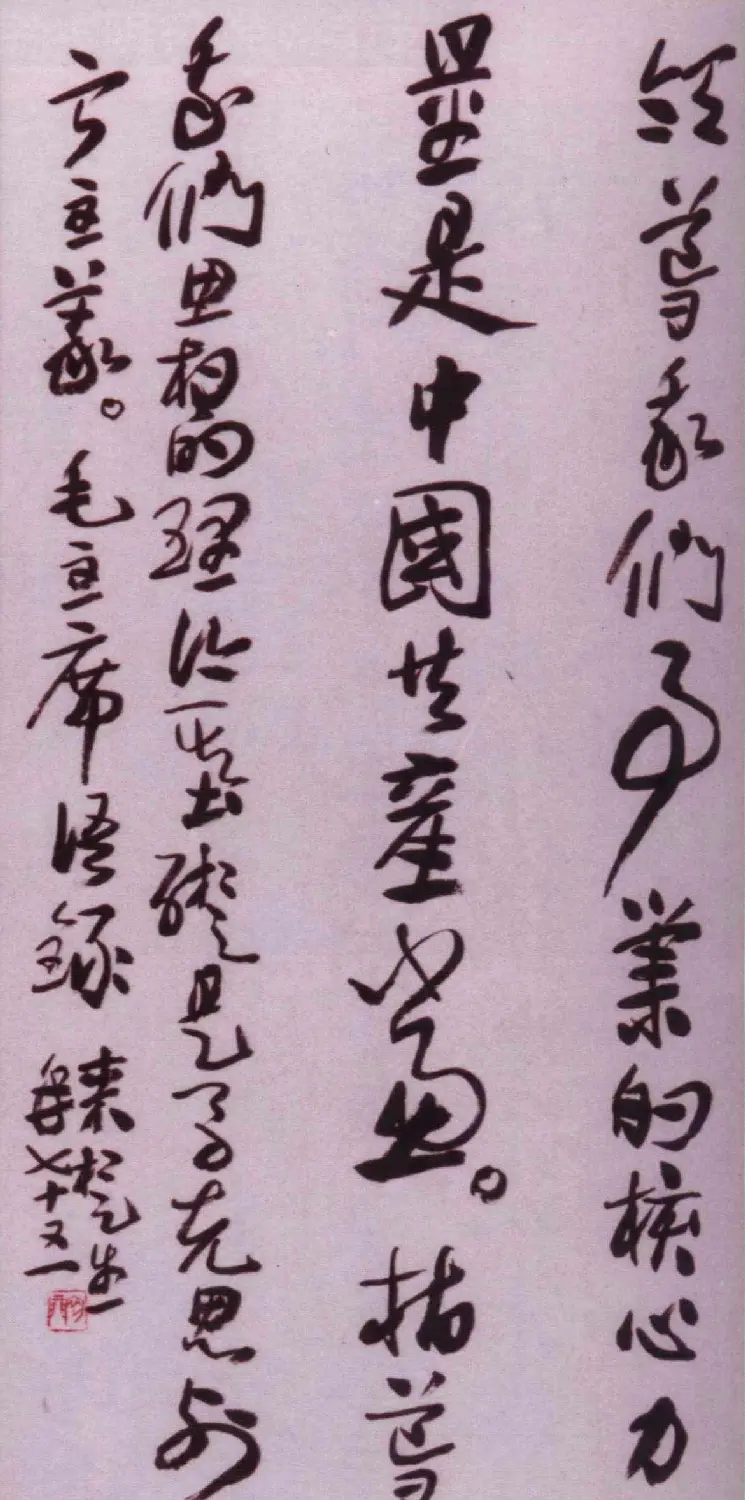 領導我們事業的核心力
量是中國共產黨。指導
我們思想的理論基礎是馬克思列
宁主義。毛主席語錄
來楚生
年七十又一